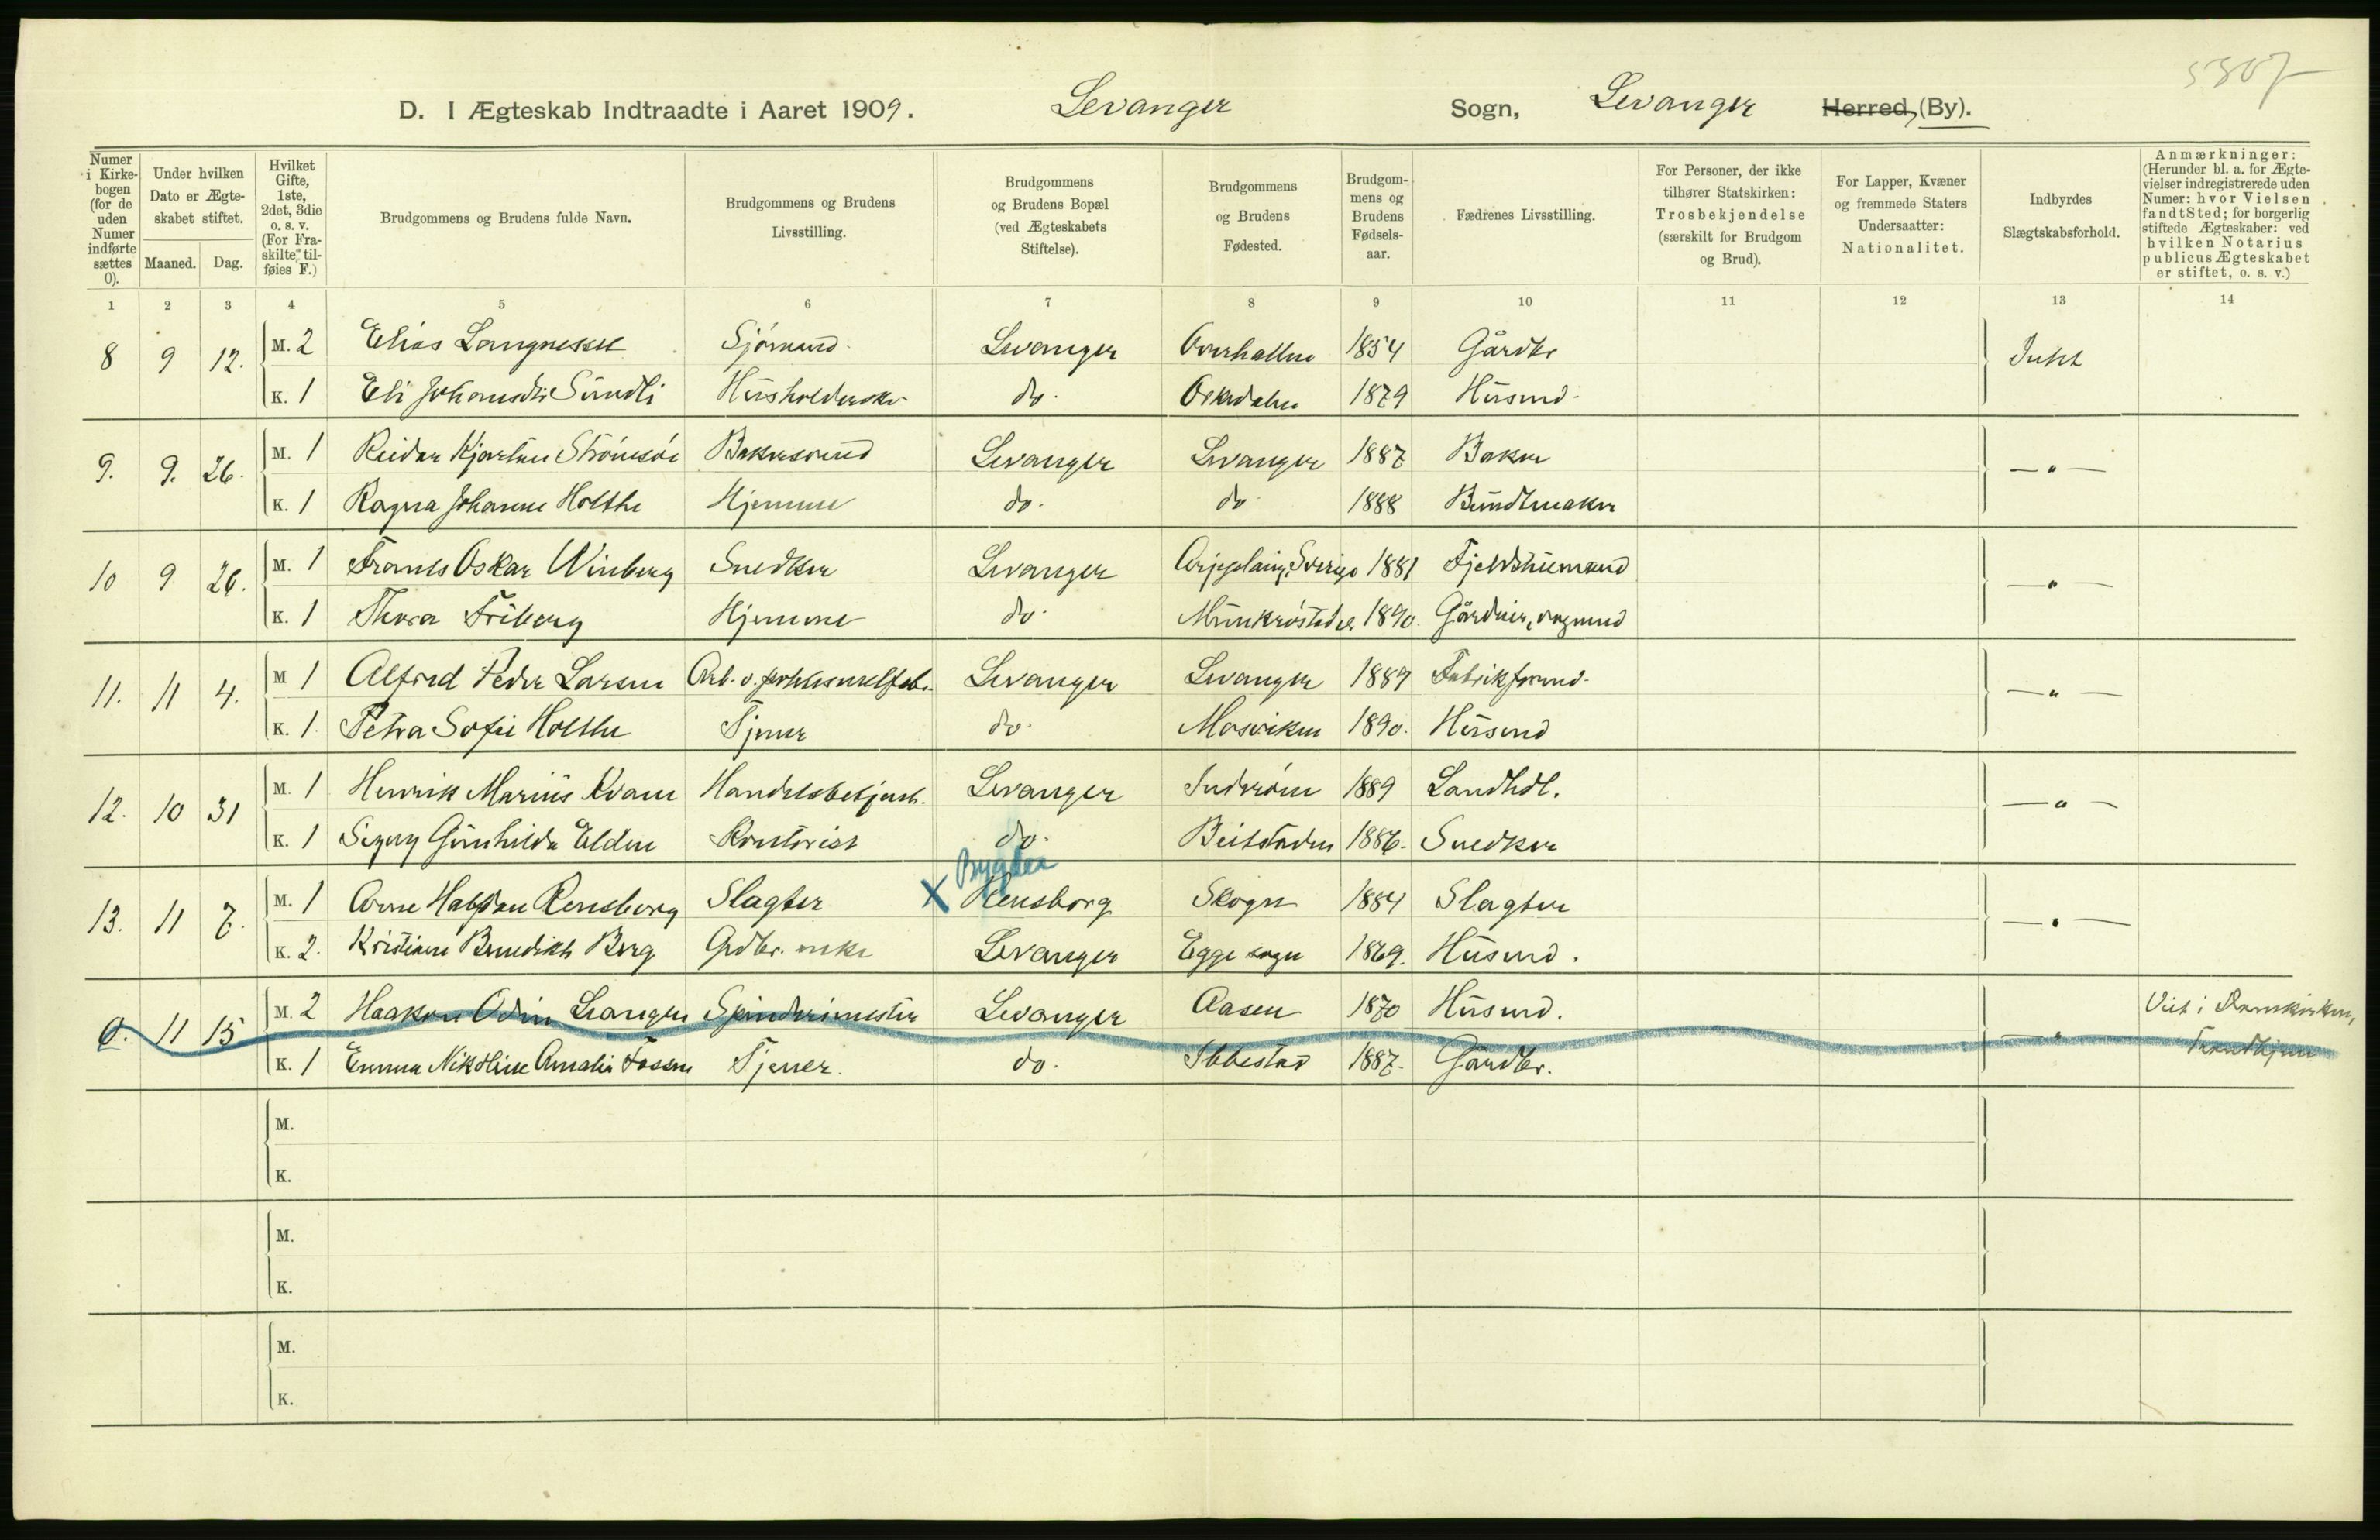 5307
D. I Ægteskab Indtraadte i Aaret 1909. Levanger Sogn, Levanger Herred, (By).
Numer i Kirkebogen (for de uden Numer indførte sættes 0).
Under hvilken Dato er Ægteskabet stiftet.
Maaned. Dag.
Hvilket Gifte, 1ste, 2det, 3die o. s. v. (For Fraskilte tilføies F.)
Brudgommens og Brudens fulde Navn.
Brudgommens og Brudens Livsstilling.
Brudgommens og Brudens Bopæl (ved Ægteskabets Stiftelse).
Brudgommens og Brudens Fødested.
Brudgommens og Brudens Fødselsaar.
Fædrenes Livsstilling.
For Personer, der ikke tilhører Statskirken: Trosbekjendelse (særskilt for Brudgom og Brud).
For Lapper, Kvæner og fremmede Staters Undersaatter: Nationalitet.
Indbyrdes Slægtskabsforhold.
Anmærkninger: (Herunder bl. a. for Ægtevielser indregistrerede uden Numer: hvor Vielsen fandt Sted; for borgerlig stiftede Ægteskaber: ved hvilken Notarius publicus Ægteskabet er stiftet, o. s. v.)
1 2 3 4 5 6 7 8 9 10 11 12 13 14
8 9 12. M. 2 Elias Langnesset Sjømand Levanger Overhallen 1854 Gårdbr Intet
K. 1 Eli Johansdtr Sundli Husholderske do. Orkedalen 1879 Husmd.
9. 9. 26. M. 1 Reidar Kjartan Strømsøe Bakersvend Levanger Levanger 1887 Baker — " —
K. 1 Ragna Johanne Holthe Hjemme do. do 1888 Bundtmaker
10 9 26. M. 1 Frants Oskar Winberg Snedker Levanger Arjeplaug, Sverige 1881 — " —
K. 1 Thora Friberg Hjemme do. 1890.
11. 11 4. M 1 Alfred Peder Larsen Levanger Levanger 1889 — " —
K. 1 Petra Sofie Holthe Tjener do. Mosviken 1890. Husmd
12. 10 31 M. 1 Henrik Marius Kvam Handelsbetjent. Levanger Inderøen 1889 Landhdl. — " —
K. 1 Gunhilda Elden Kontorist do. Beitstaden 1886. Snedker
Bygden
13. 11 7. M. 1 Arne Halfdan Rensberg Slagter X Rensborg Skogn 1884 Slagter — " —
K. 2. Kristiane Benedikte Berg Grdbr. enke Levanger Egge sogn 1869. Husmd.
0. 11 15 M. 2 Haakon Odin Levanger Spinderimester Levanger Aasen 1870 Husmd. — " — Viet i Domkirken,
Trondhjem
K. 1 Emma Nikoline Amalie Fossen Tjener. do. Ibbestad 1887. Gårdbr.
M.
K.
M.
K.
M.
K.